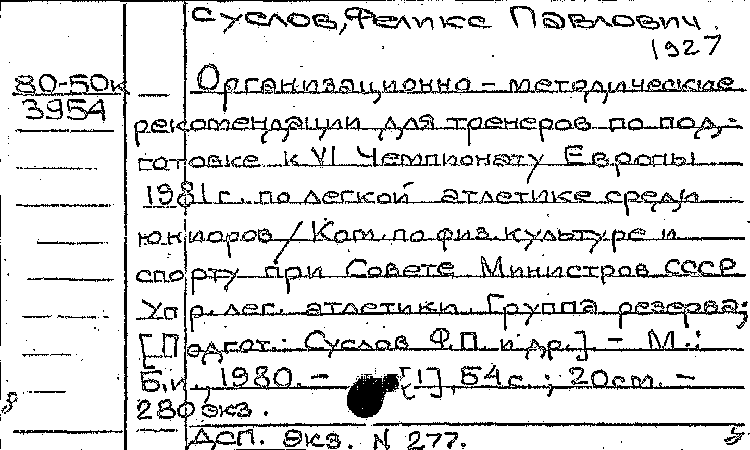 Суслов, Феликс Павлович.
1927
80-50к
3954
Организационно-методические
рекомендации для тренеров по под-
готовке к VI Чемпионату Европы
1981 г. по легкой атлетике среди
юниоров / Ком. по физ. культуре и
спорту при Совете Министров СССР
Упр. лег. атлетики. Группа резерва;
[Подгот.: Суслов Ф.П. и др.]. - М.:
Б.и., 1980. - [1], 54 с.; 20 см. -
280 экз.
ДСП. Экз. N 277.